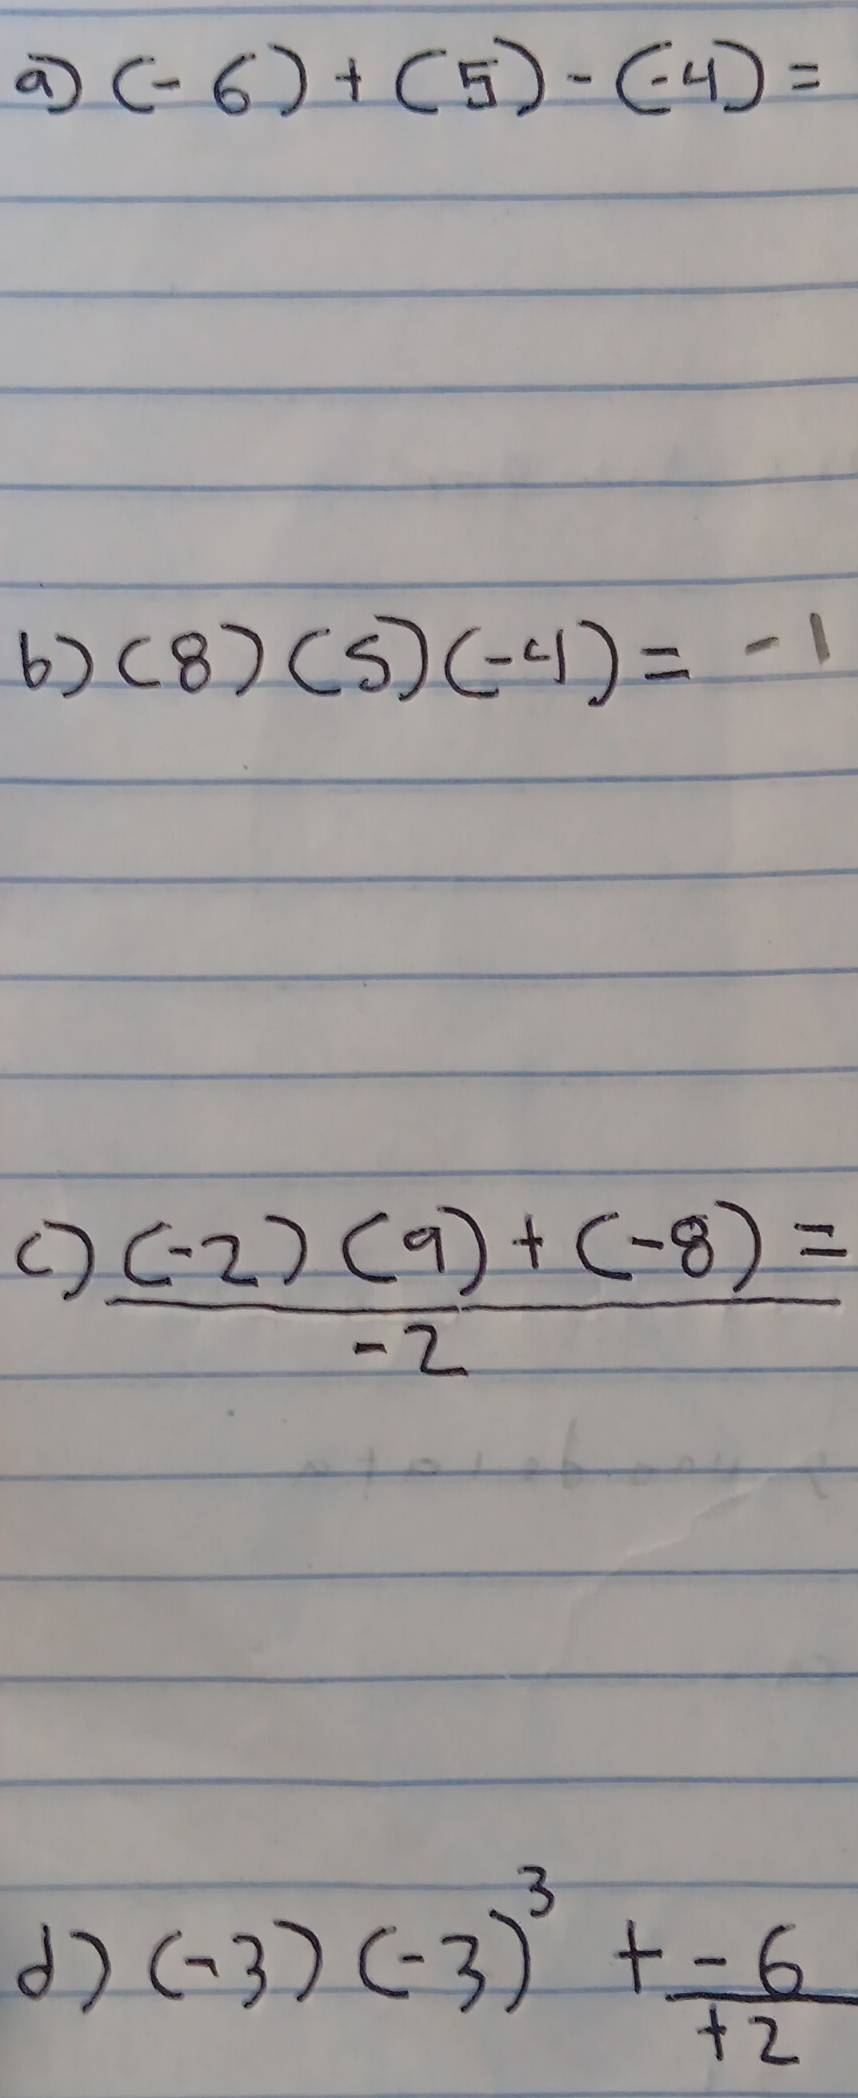 a) (-6) + (5) - (-4) =
b) (8) (5) (-4) = -1
c) (-2) (9) + (-8) =
-2
d) (-3) (-3)³ + -6
+2